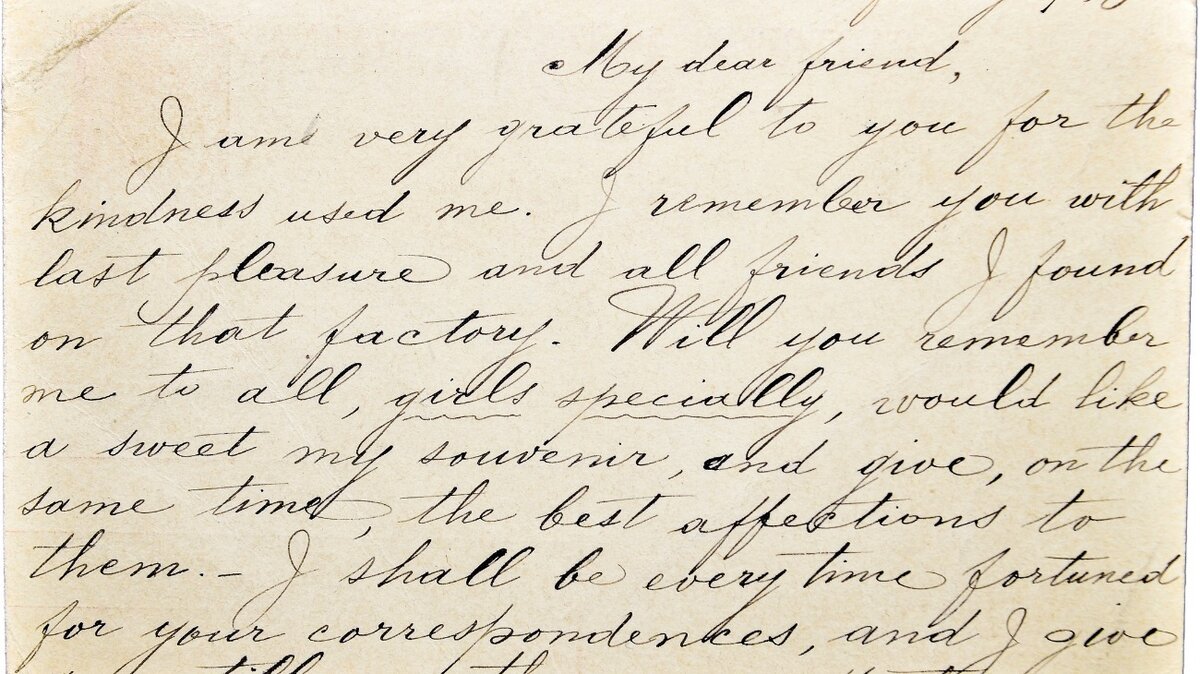 My dear friend,
I am very grateful to you for the
kindness used me. I remember you with
last pleasure and all friends I found
on that factory. Will you remember
me to all, girls specially, would like
a sweet my souvenir, and give, on the
same time, the best affections to
them. - I shall be every time fortuned
for your correspondences, and I give